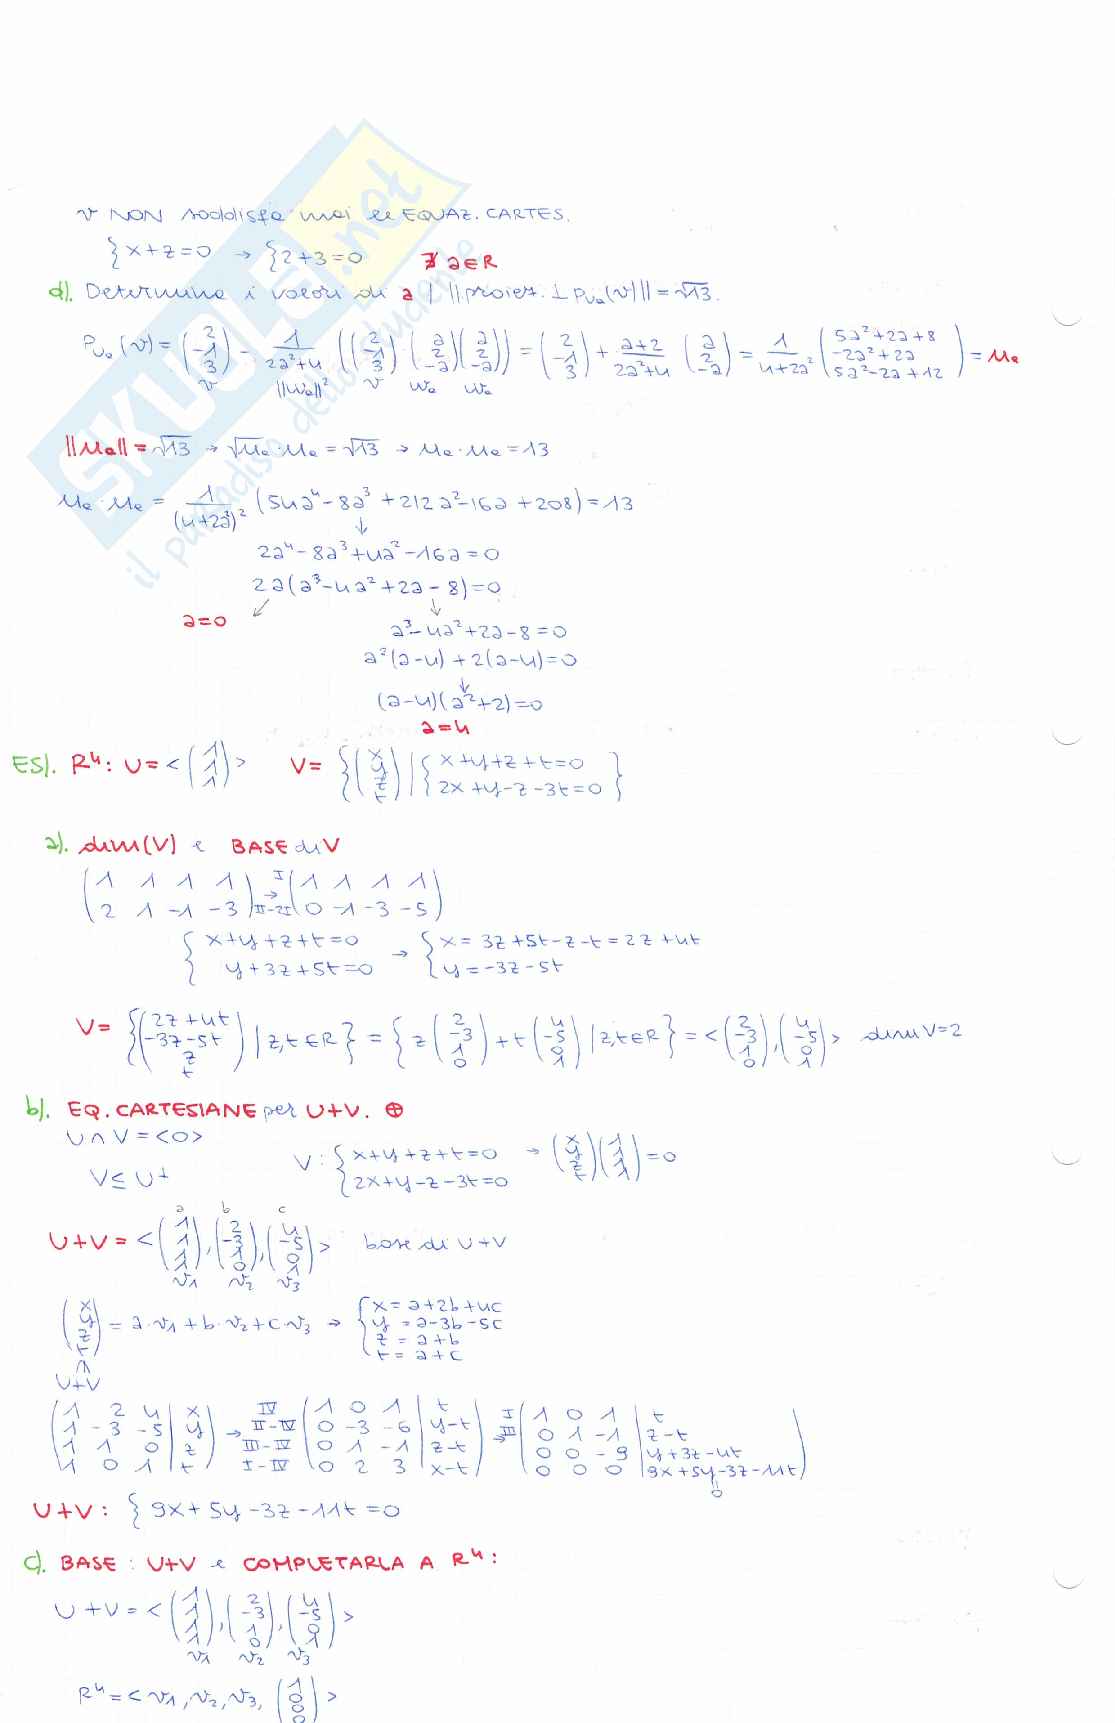 v NON soddisfa mai le EQUAZ. CARTES.
{ x+z=0 → { 2+3=0 ∄ a∈R
d). Determina i valori di a | ||proiez. ⊥ P_Ua(v)|| = √13.
P_Ua(v) = (2 -1 3) - 1/(2a²+4) ((2 -1 3)·(a 2 -a)(a 2 -a)) = (2 -1 3) + (a+2)/(2a²+4) (a 2 -a) = 1/(4+2a²) (5a²+2a+8 -2a²+2a 5a²-2a+12) = Ma
v ||Wa||² v Wa Wa
||Ma|| = √13 → √Ma·Ma = √13 → Ma·Ma = 13
Ma·Ma = 1/(4+2a²)² (54a⁴-8a³+212a²-16a+208) = 13
↓
2a⁴-8a³+4a²-16a=0
2a(a³-4a²+2a-8)=0
a=0
a³-4a²+2a-8=0
a²(a-4)+2(a-4)=0
↓
(a-4)(a²+2)=0
a=4
ES). R⁴: U = < (1 1 1 1) > V = { (x y z t) | { x+y+z+t=0
2x+y-z-3t=0 }
a). dim(V) e BASE di V
(1 1 1 1 I (1 1 1 1
2 1 -1 -3) → II-2I 0 -1 -3 -5)
{ x+y+z+t=0 → { x=3z+5t-z-t=2z+4t
y+3z+5t=0 y=-3z-5t
V = { (2z+4t -3z-5t z t) | z,t∈R } = { z (2 -3 1 0) + t (4 -5 0 1) | z,t∈R } = < (2 -3 1 0), (4 -5 0 1) > dim V=2
b). EQ. CARTESIANE per U+V. ⊕
U∩V = <0>
V≤U⊥
V: { x+y+z+t=0 → (x y z t)(1 1 1 1) = 0
2x+y-z-3t=0
a b c
U+V = < (1 1 1 1), (2 -3 1 0), (4 -5 0 1) > base di U+V
v1 v2 v3
(x y z t) = a·v1+b·v2+c·v3 → { x=a+2b+4c
y=a-3b-5c
z=a+b
t=a+c
∩
U+V
(1 2 4 | x IV (1 0 1 | t I (1 0 1 | t
1 -3 -5 | y → II-IV 0 -3 -6 | y-t → III 0 1 -1 | z-t
1 1 0 | z III-IV 0 1 -1 | z-t 0 0 -9 | y+3z-4t
1 0 1 | t) I-IV 0 2 3 | x-t) 0 0 0 | 9x+5y-3z-11t)
0
U+V: { 9x+5y-3z-11t=0
c). BASE: U+V e COMPLETARLA A R⁴:
U+V = < (1 1 1 1), (2 -3 1 0), (4 -5 0 1) >
v1 v2 v3
R⁴ = < v1, v2, v3, (1 0 0 0) >
SKUOLA.net
il paradiso dello studente